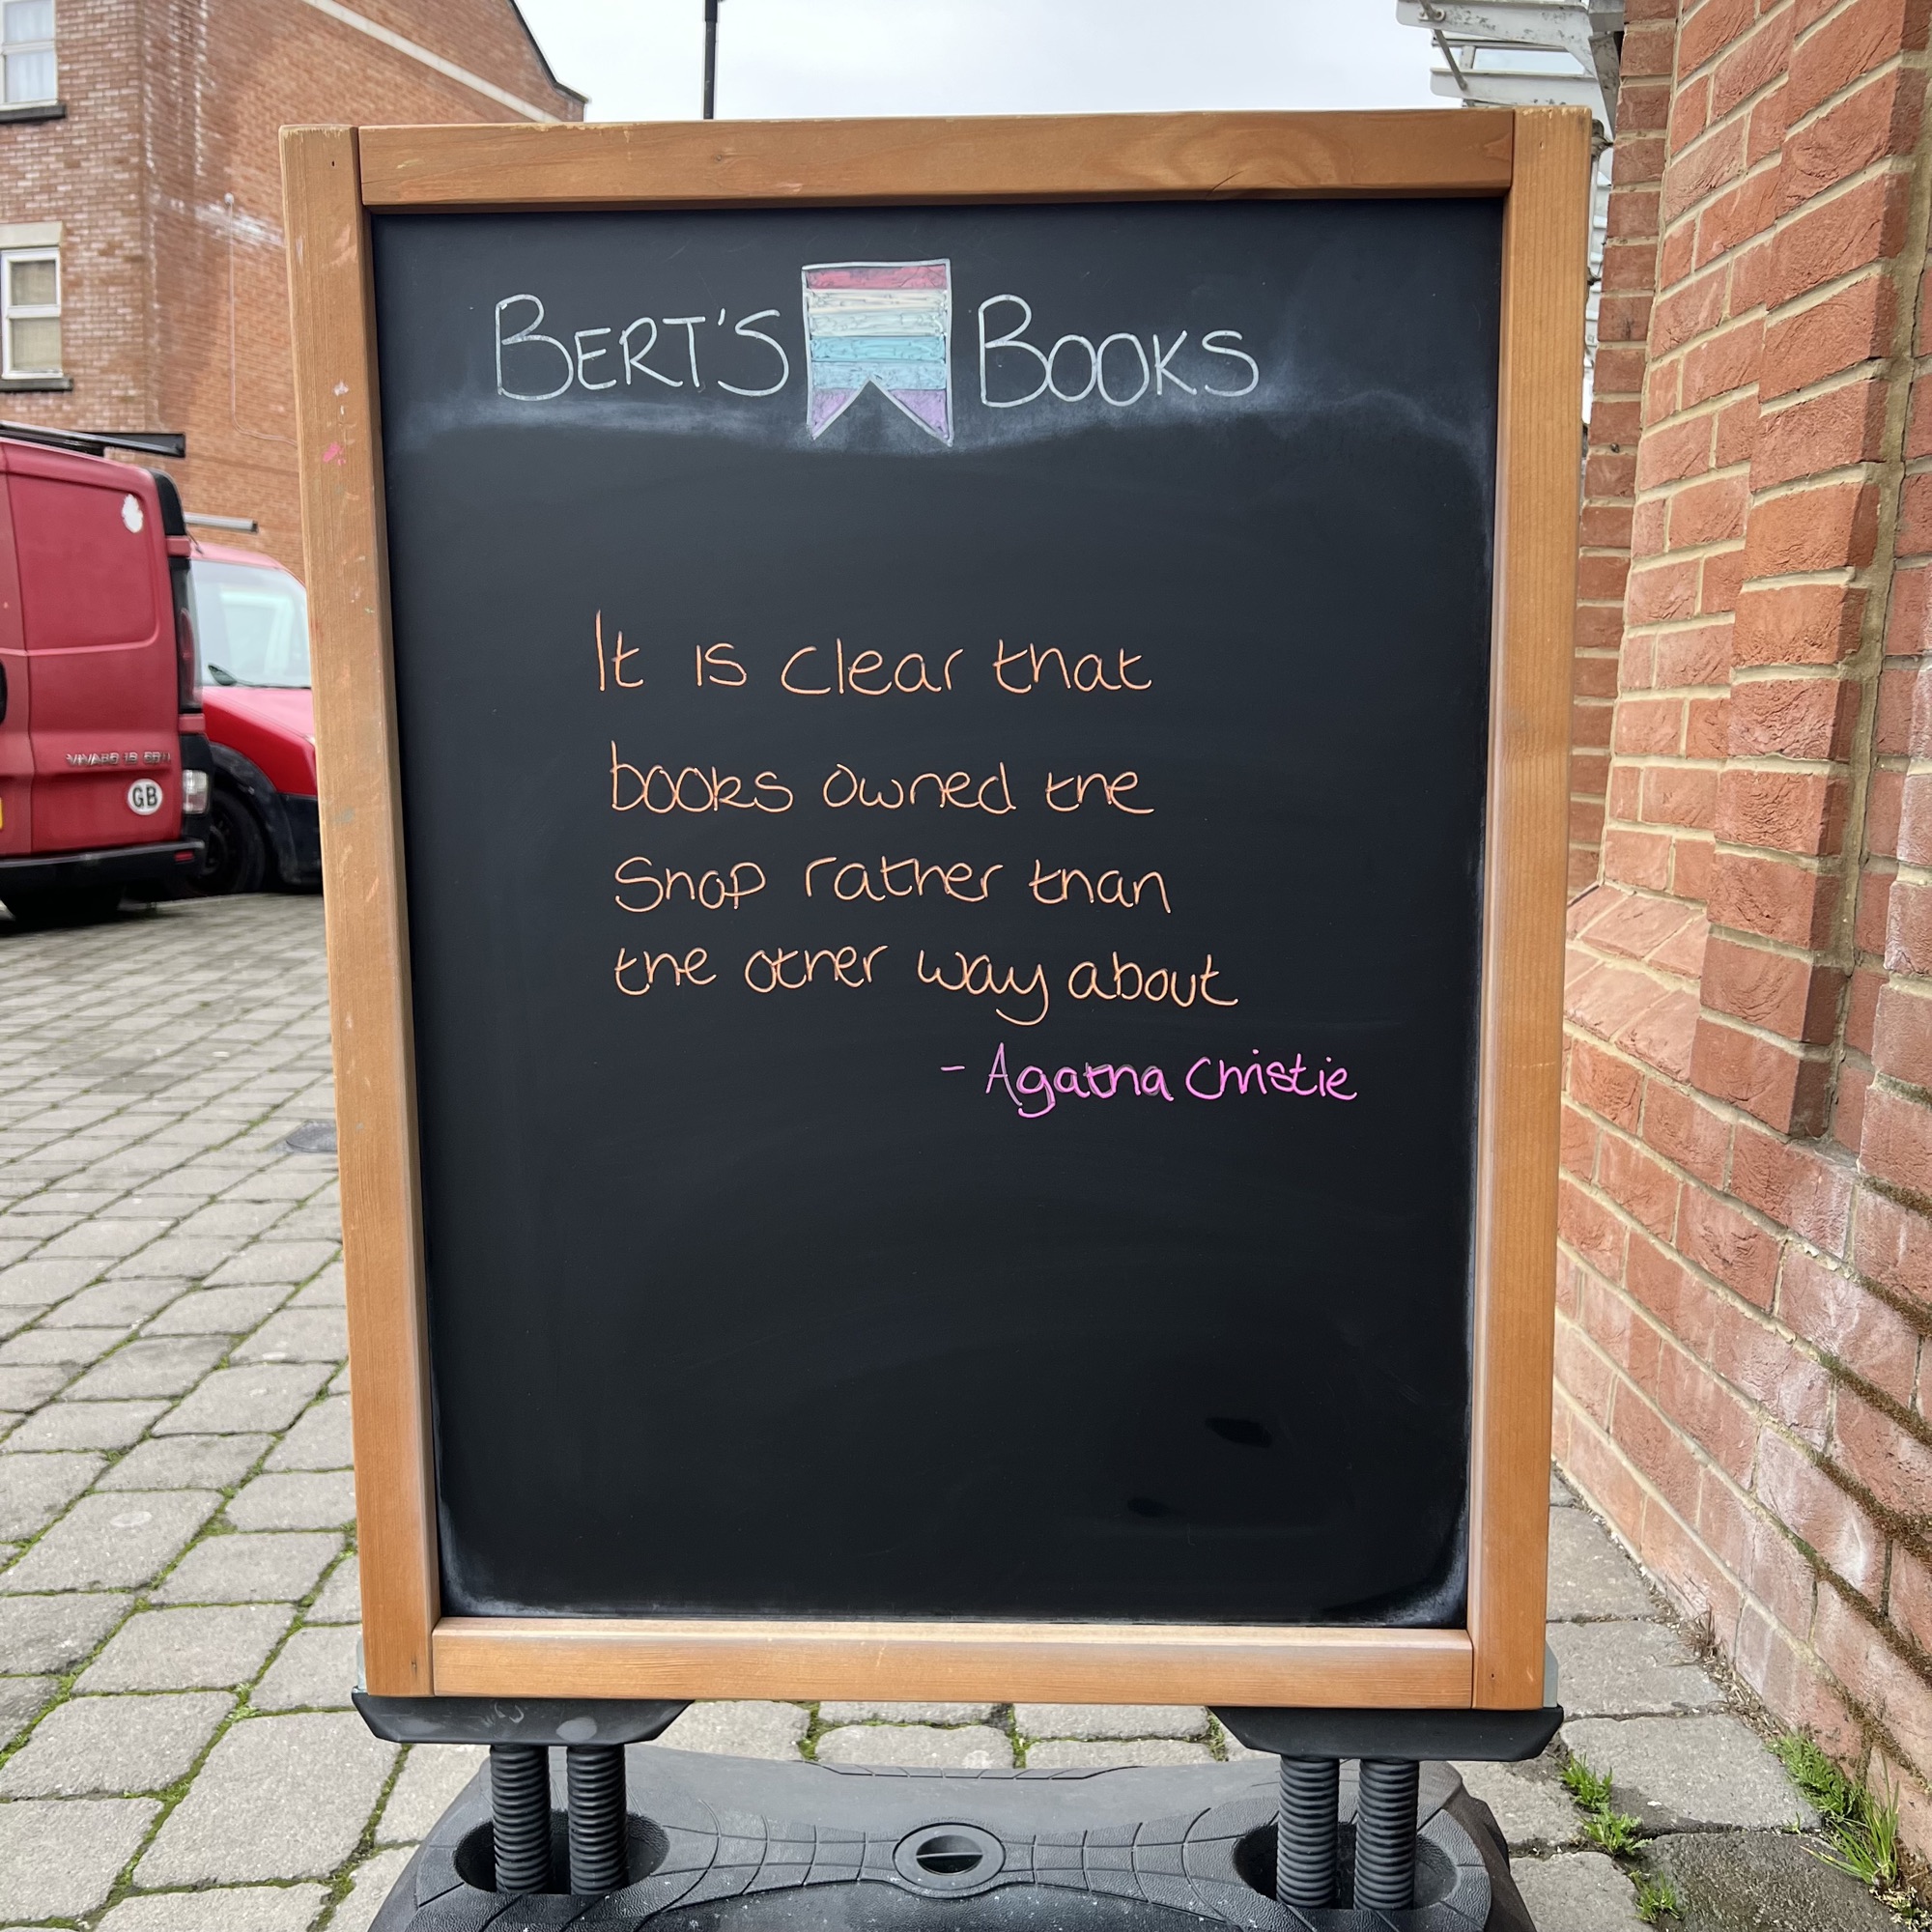 BERT'S BOOKS
It is clear that
books owned the
shop rather than
the other way about
- Agatha Christie
GB